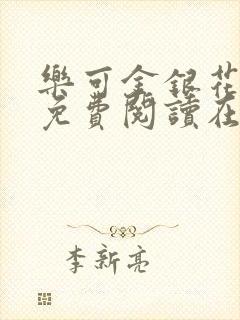 樂可金銀花
免費閱讀在
李新亮